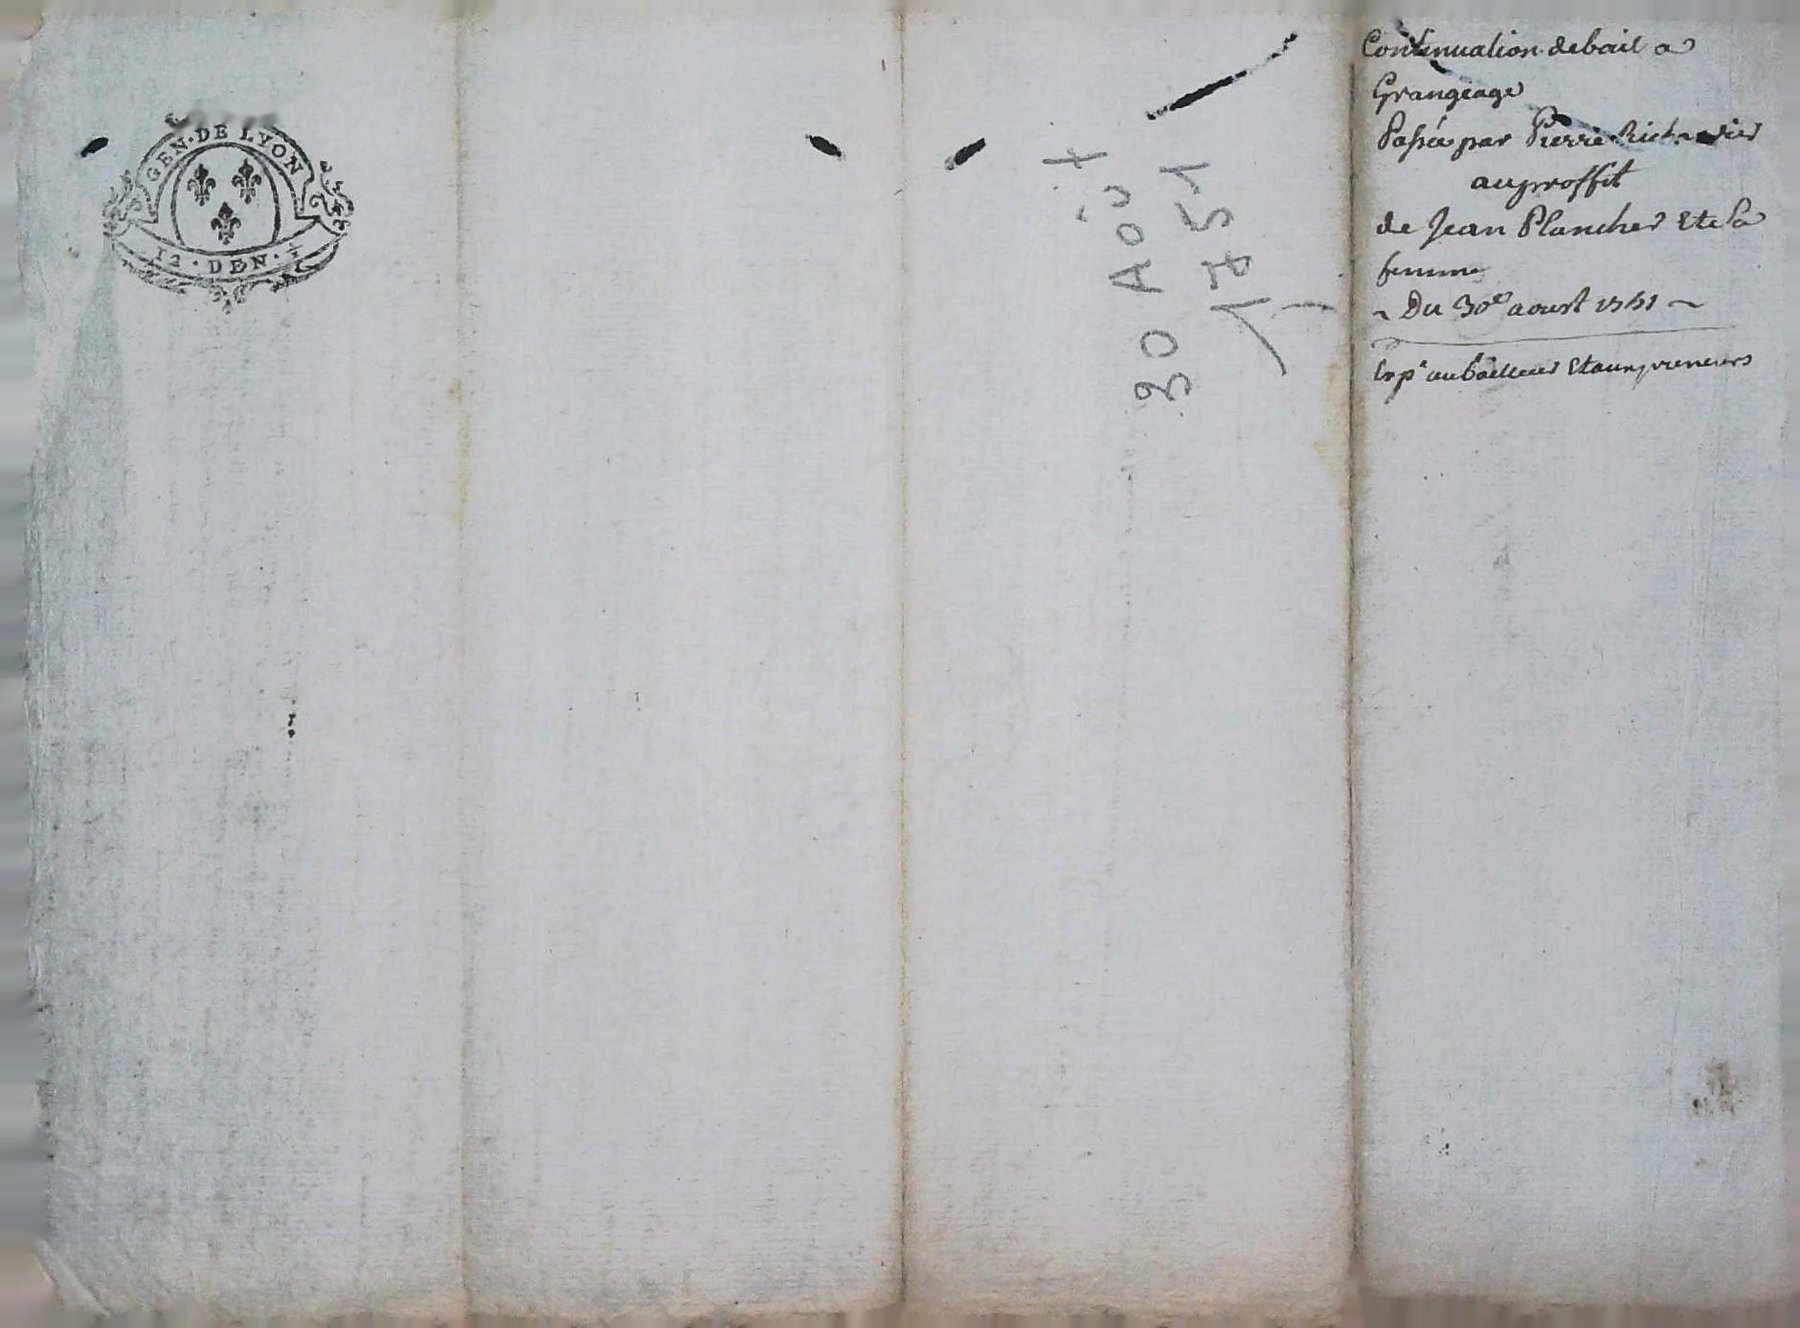 GEN·DE LYON
12·DEN·
30 Août
1751
Continuation de bail a
Grangeage
Passée par Pierre
au proffit
de Jean Plancher et Sa
femme
~ Du 30e aoust 1751 ~
Exp.e au bailleur et aux preneurs